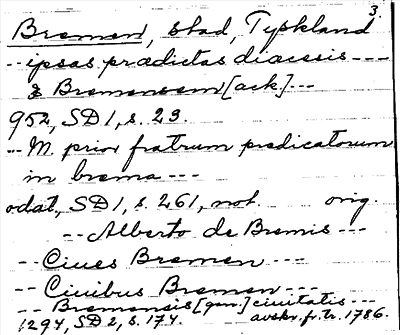 3.
Bremen, stad, Tyskland
-- ipsas prædictas diocesis ---
& Bremensem [ack.] ---
952, SD 1, s. 23.
-- M. prior fratrum predicatorum
in brema ---
odat., SD 1, s. 261, not. orig.
-- Alberto de Bremis --
-- Ciues Bremen ---
-- Ciuibus Bremen ---
-- Bremensis [gen.] ciuitatis ---
1294, SD 2, s. 174. avskr. fr. tr. 1786.